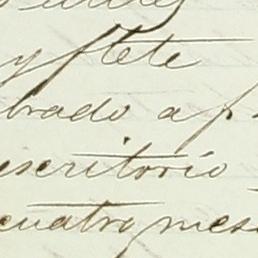 y flete
brado a f
escritorio
cuatro mes